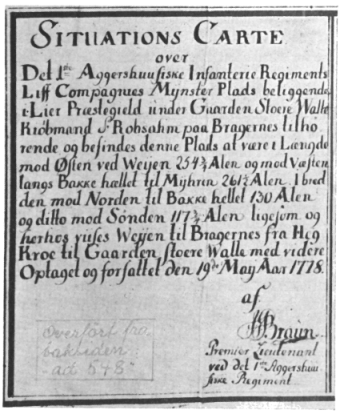 SITUATIONS CARTE
over
Det 1ste Aggershuusiske Infanterie Regiments
Liff Compagnies Mynster Plads beliggende
i Lier Præstegield under Gaarden Stoere Walle
Kiöbmand Sr Robsahm paa Bragernes tilhö
rende og befindes denne Plads at være i Længde
mod Østen ved Weyen 254¾ Alen og mod Væsten
langs Bakke hællet til Myhren 261½ Alen. I bred
den mod Norden til Bakke hellet 130 Alen
og ditto mod Sönden 117¾ Alen ligesom og
herhos viises Weyen til Bragernes fra Heg
Kroe til Gaarden stoere Walle med videre
Optaget og forfattet den 19de May Aar 1778.
af
Braun
Premier Lieutenant
ved det 1ste Aggershuu
siske Regiment
Overført fra
baksiden
ad 548